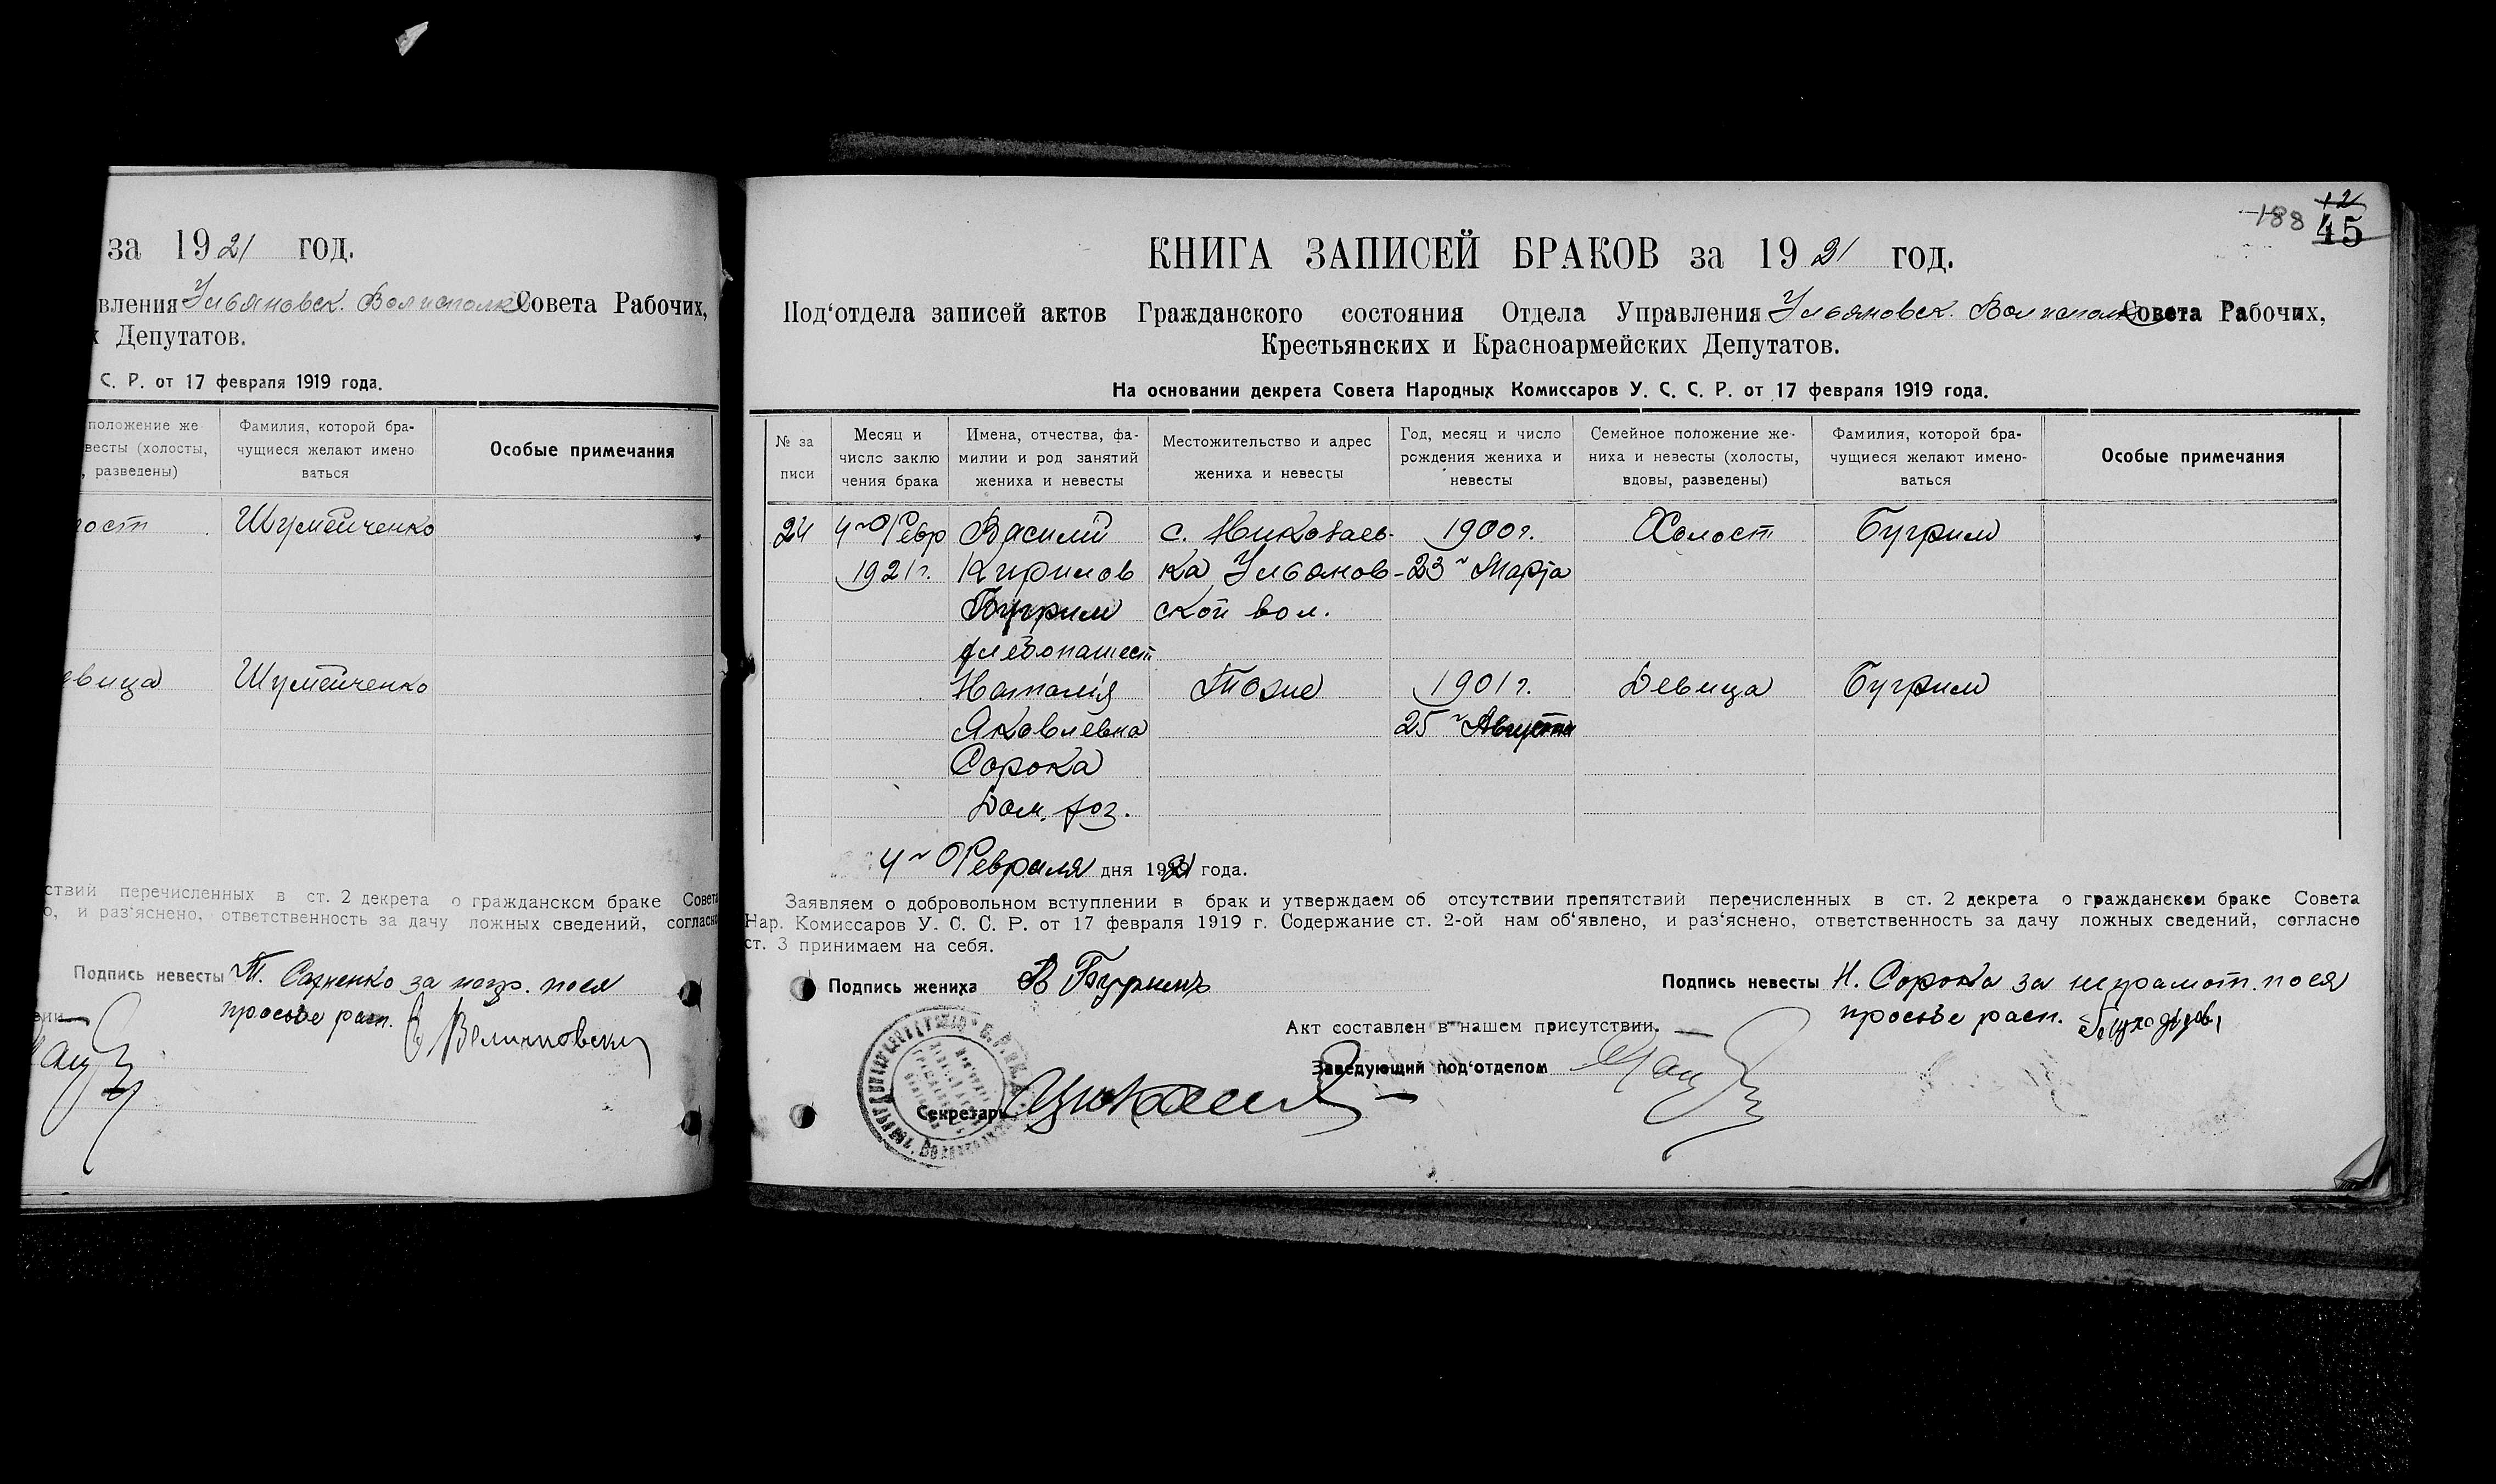 за 1921 год.
вления Ульяновск. Волисполк. Совета Рабочих,
х Депутатов.
С. Р. от 17 февраля 1919 года.
положение же
весты (холосты,
, разведены)
Фамилия, которой бра-
чущиеся желают имено
ваться
Особые примечания
ост
Шумейченко
евица
Шумейченко
ствий перечисленных в ст. 2 декрета о гражданском браке Совета
о, и раз'яснено, ответственность за дачу ложных сведений, согласно
Подпись невесты Т. за негр. по ея
просьбе расп.
188
12
45
КНИГА ЗАПИСЕЙ БРАКОВ за 1921 год.
Под'отдела записей актов Гражданского состояния Отдела Управления Ульяновск. Волисполк. Совета Рабочих,
Крестьянских и Красноармейских Депутатов.
На основании декрета Совета Народных Комиссаров У. С. С. Р. от 17 февраля 1919 года.
№ за
писи
Месяц и
число заклю
чения брака
Имена, отчества, фа-
милии и род занятий
жениха и невесты
Местожительство и адрес
жениха и невесты
Год, месяц и число
рождения жениха и
невесты
Семейное положение же-
ниха и невесты (холосты,
вдовы, разведены)
Фамилия, которой бра-
чущиеся желают имено-
ваться
Особые примечания
24
4го Февр
1921 г.
Василий
Кирилов
Бугрим
хлебопашест
с. Николаев-
ка Ульянов-
ской вол.
1900 г.
23го Марта
Холост
Бугрим
Наталія
Яковлевна
Сорока
Дом. хоз.
Тоже
1901 г.
25го Августа
Девица
Бугрим
4го Февраля дня 1921 года.
Заявляем о добровольном вступлении в брак и утверждаем об отсутствии препятствий перечисленных в ст. 2 декрета о гражданском браке Совета
Нар. Комиссаров У. С. С. Р. от 17 февраля 1919 г. Содержание ст. 2-ой нам об'явлено, и раз'яснено, ответственность за дачу ложных сведений, согласно
ст. 3 принимаем на себя.
Подпись жениха В Бугримъ
Подпись невесты Н. Сорока за неграмот. по ея
просьбе расп.
Акт составлен в нашем присутствии.
Заведующий под'отделом
Секретарь